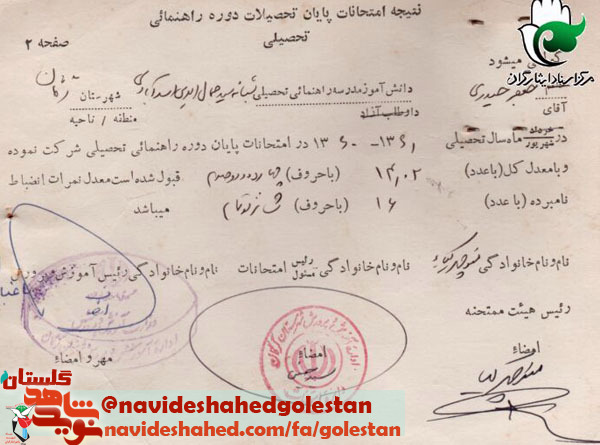 نتیجه امتحانات پایان تحصیلات دوره راهنمائی تحصیلی
صفحه ۲
مرکز اسناد ایثارگران
میشود
آقای جعفر حیدری
دانش آموز مدرسه راهنمائی تحصیلی شبانه سید جمال الدین اسدآبادی شهرستان گرگان
داوطلب آزاد منطقه / ناحیه
در خرداد شهریور ماه سال تحصیلی ۱۳۶۱-۱۳۶۰ در امتحانات پایان دوره راهنمائی تحصیلی شرکت نموده
و با معدل کل (با عدد) ۱۴/۰۲ (با حروف) چهارده و دو صدم قبول شده است معدل نمرات انضباط
نامبرده (با عدد) ۱۶ (با حروف) شانزده تمام میباشد
نام و نام خانوادگی
نام و نام خانوادگی رئیس مسئول امتحانات
نام و نام خانوادگی رئیس آموزش و پرورش
رئیس هیئت ممتحنه
امضاء
امضاء
مهر و امضاء
نوید شاهد گلستان
@navideshahedgolestan
navideshahed.com/fa/golestan